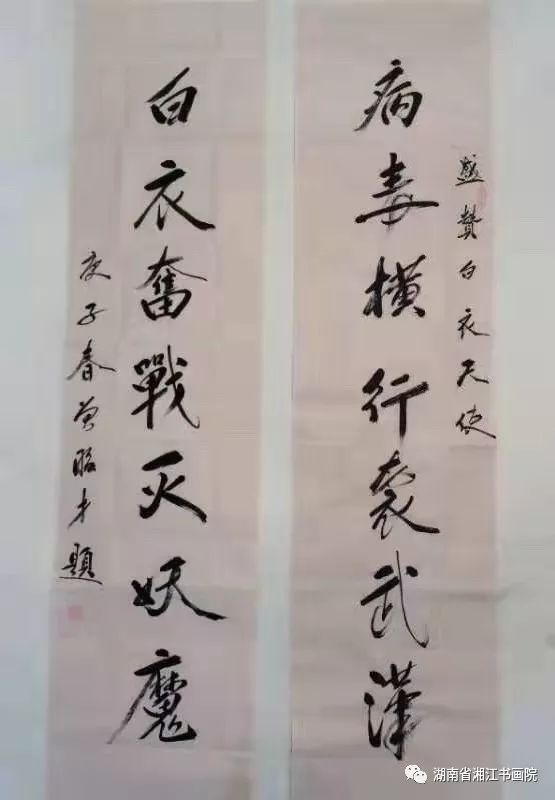 贊白衣天使
病毒横行袭武漢
白衣奮戰灭妖魔
庚子春曾昭才題
湖南省湘江书画院